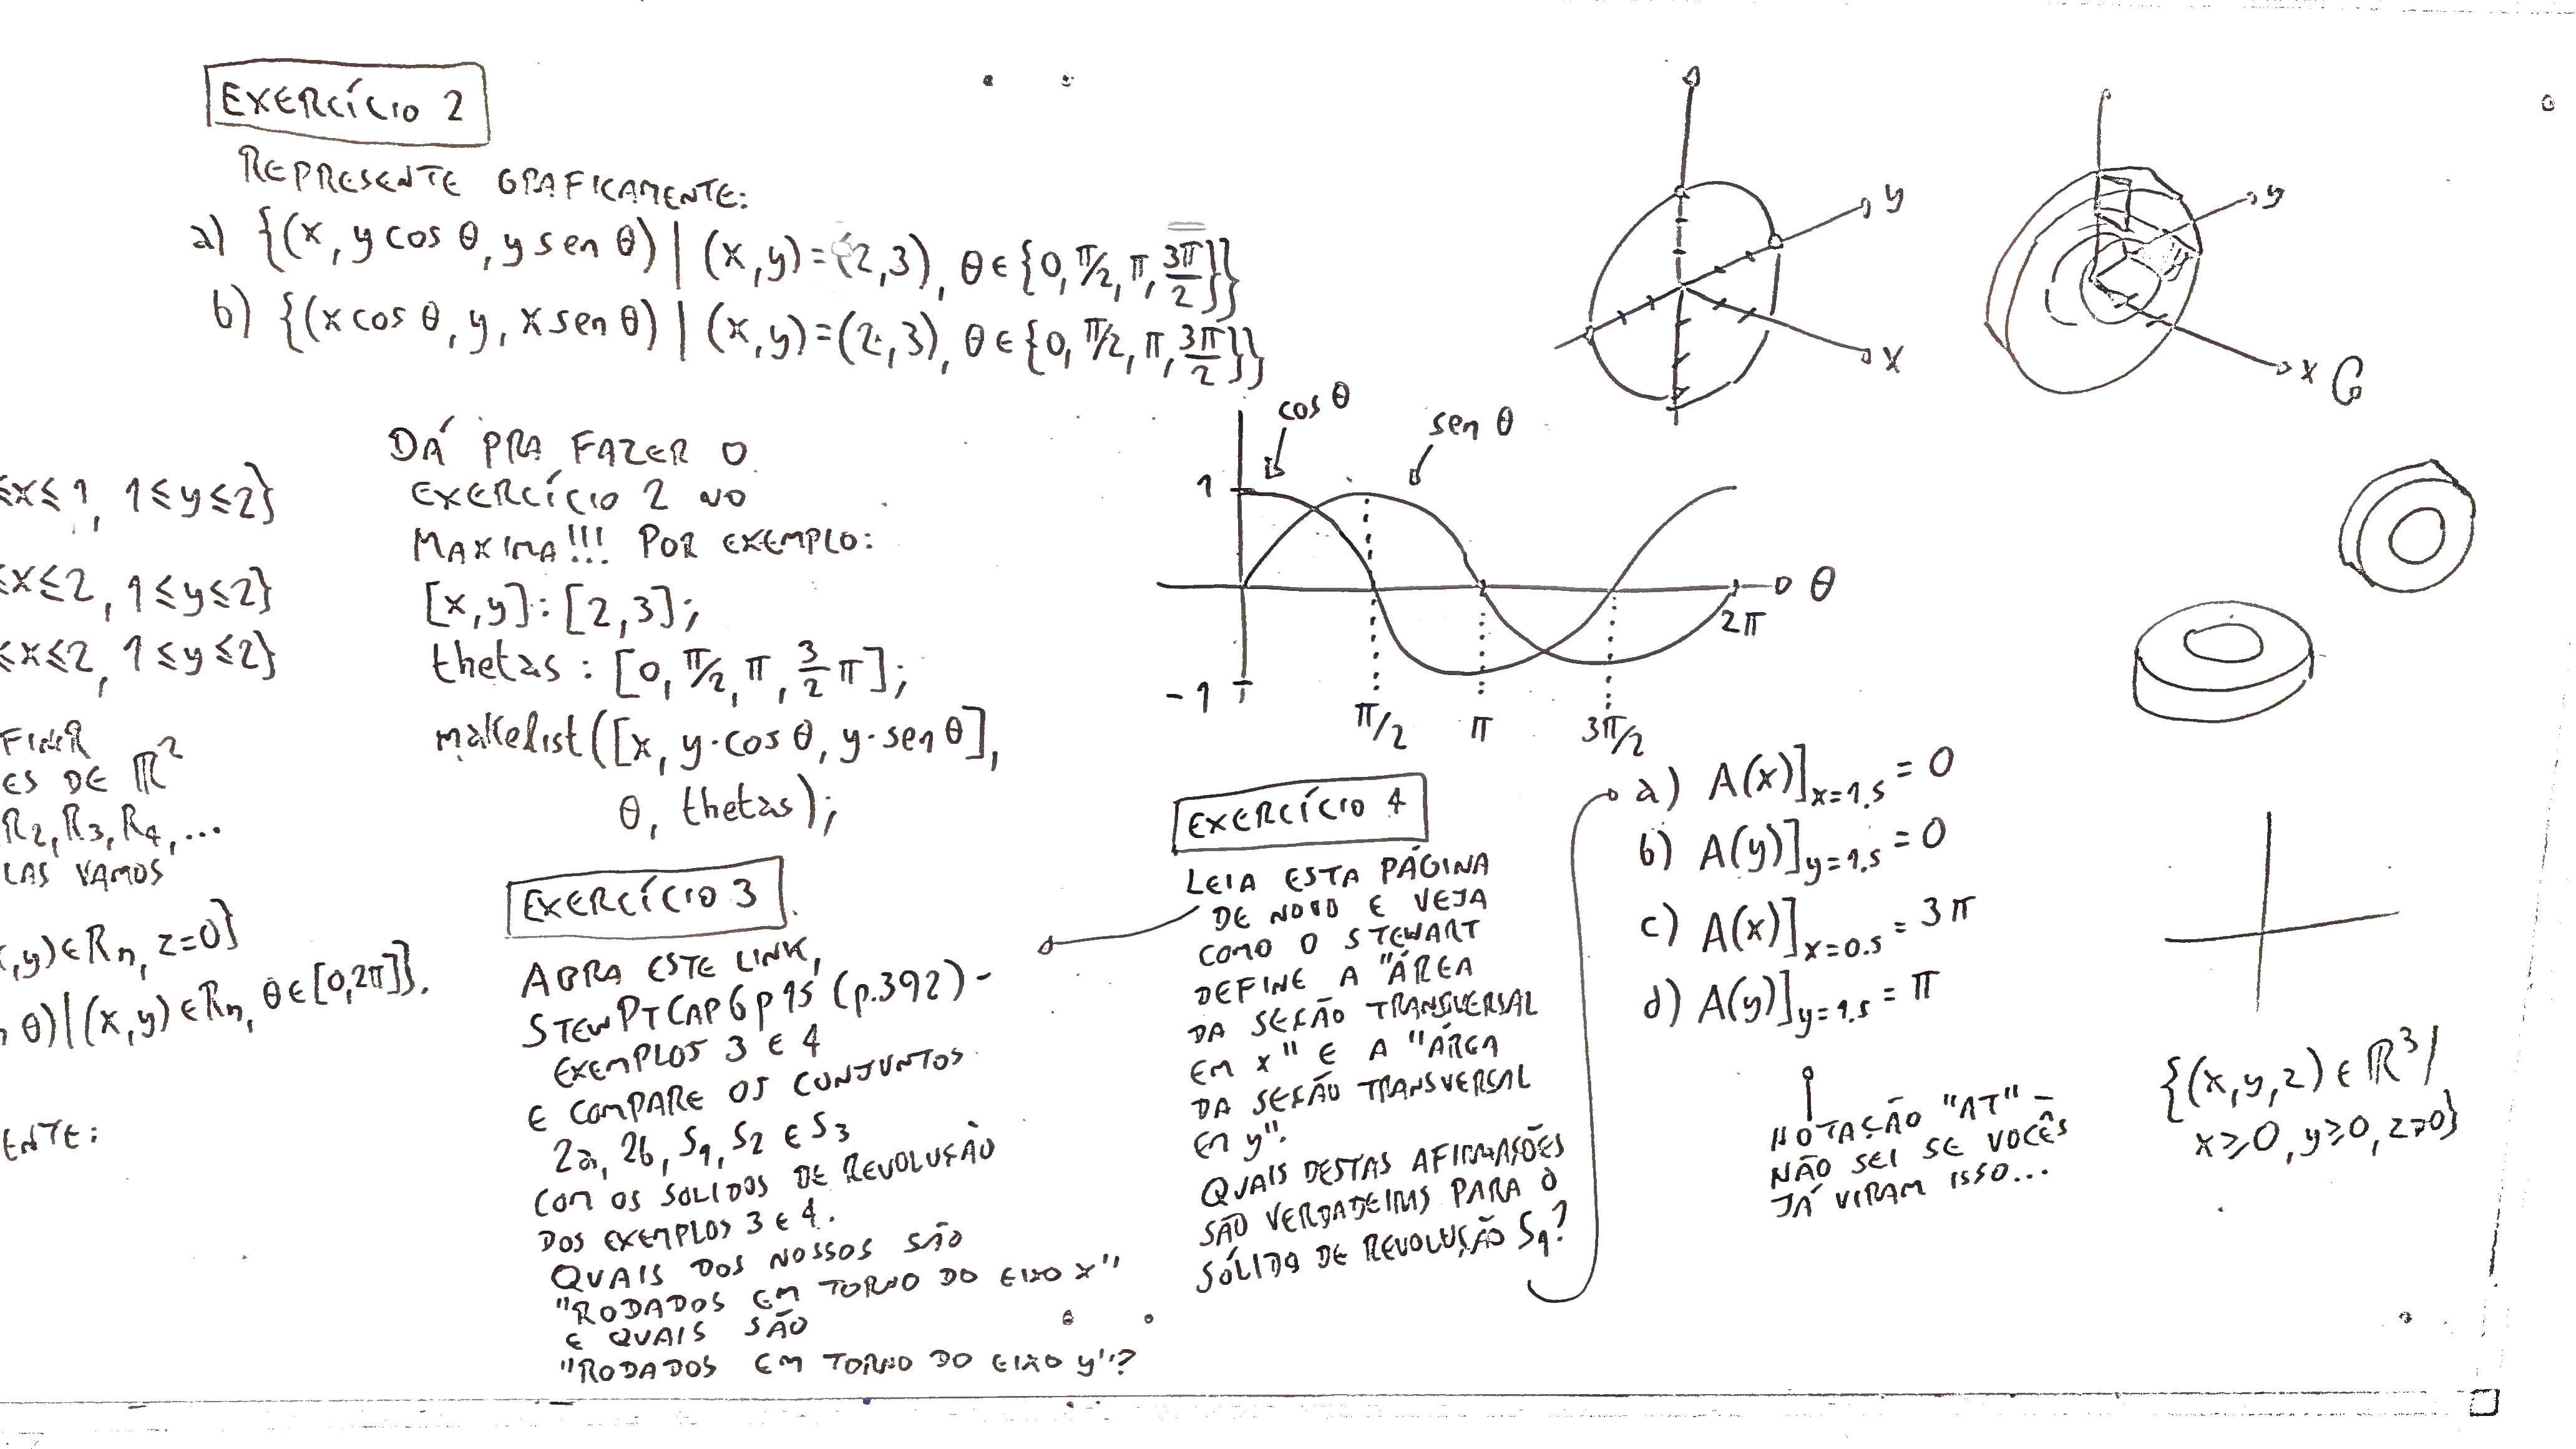 EXERCÍCIO 2
REPRESENTE GRAFICAMENTE:
a) {(x, y cos θ, y sen θ) | (x,y)=(2,3), θ∈{0, π/2, π, 3π/2}}
b) {(x cos θ, y, x sen θ) | (x,y)=(2,3), θ∈{0, π/2, π, 3π/2}}
≤x≤1, 1≤y≤2}
≤x≤2, 1≤y≤2}
≤x≤2, 1≤y≤2}
FINIR
ES DE ℝ²
R2, R3, R4, ...
LAS VAMOS
,y)∈Rn, z=0}
θ) | (x,y)∈Rn, θ∈[0,2π]}.
ENTE:
DÁ PRA FAZER O
EXERCÍCIO 2 NO
MAXIMA!!! POR EXEMPLO:
[x,y]:[2,3];
thetas : [0, π/2, π, 3/2 π];
makelist([x, y·cos θ, y·sen θ],
θ, thetas);
EXERCÍCIO 3
ABRA ESTE LINK,
STEWPTCAP6P15 (p.392) -
EXEMPLOS 3 E 4
E COMPARE OS CONJUNTOS
2a, 2b, S1, S2 E S3
COM OS SOLIDOS DE REVOLUÇÃO
DOS EXEMPLOS 3 E 4.
QUAIS DOS NOSSOS SÃO
"RODADOS EM TORNO DO EIXO X"
E QUAIS SÃO
"RODADOS EM TORNO DO EIXO y"?
cos θ
sen θ
1
-1
θ
π/2
π
3π/2
2π
EXERCÍCIO 4
LEIA ESTA PÁGINA
DE NOVO E VEJA
COMO O STEWART
DEFINE A "ÁREA
DA SEÇÃO TRANSVERSAL
EM X" E A "ÁREA
DA SEÇÃO TRANSVERSAL
EM y".
QUAIS DESTAS AFIRMAÇÕES
SÃO VERDADEIRAS PARA O
SÓLIDO DE REVOLUÇÃO S1?
a) A(x)]x=1.5 = 0
b) A(y)]y=1.5 = 0
c) A(x)]x=0.5 = 3π
d) A(y)]y=1.5 = π
NOTAÇÃO "AT" –
NÃO SEI SE VOCÊS
JÁ VIRAM ISSO...
y
x
y
x
{(x,y,z) ∈ ℝ³ |
x≥0, y≥0, z≥0}